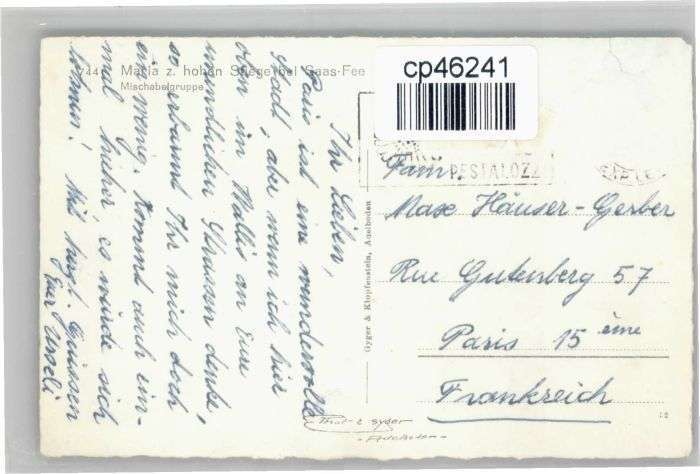 7441 Maria z. hohen Stiege bei Saas-Fee
Mischabelgruppe
cp46241
PESTALOZZI
Ihr Lieben,
Paris ist eine wundervolle
Stadt, aber wenn ich hier
oben im Wallis an Eure
unendlichen Strassen denke,
so erbarmt Ihr mich doch
ein wenig. Kommt auch ein-
mal hieher es würde sich
lohnen! Mit herzl. Grüssen
Eur Ursuli
Gyger & Klopfenstein, Adelboden
Fam.
Max Häuser-Gerber
Rue Gutenberg 57
Paris 15 ème
Frankreich
Phot. E. Gyger
Adelboden